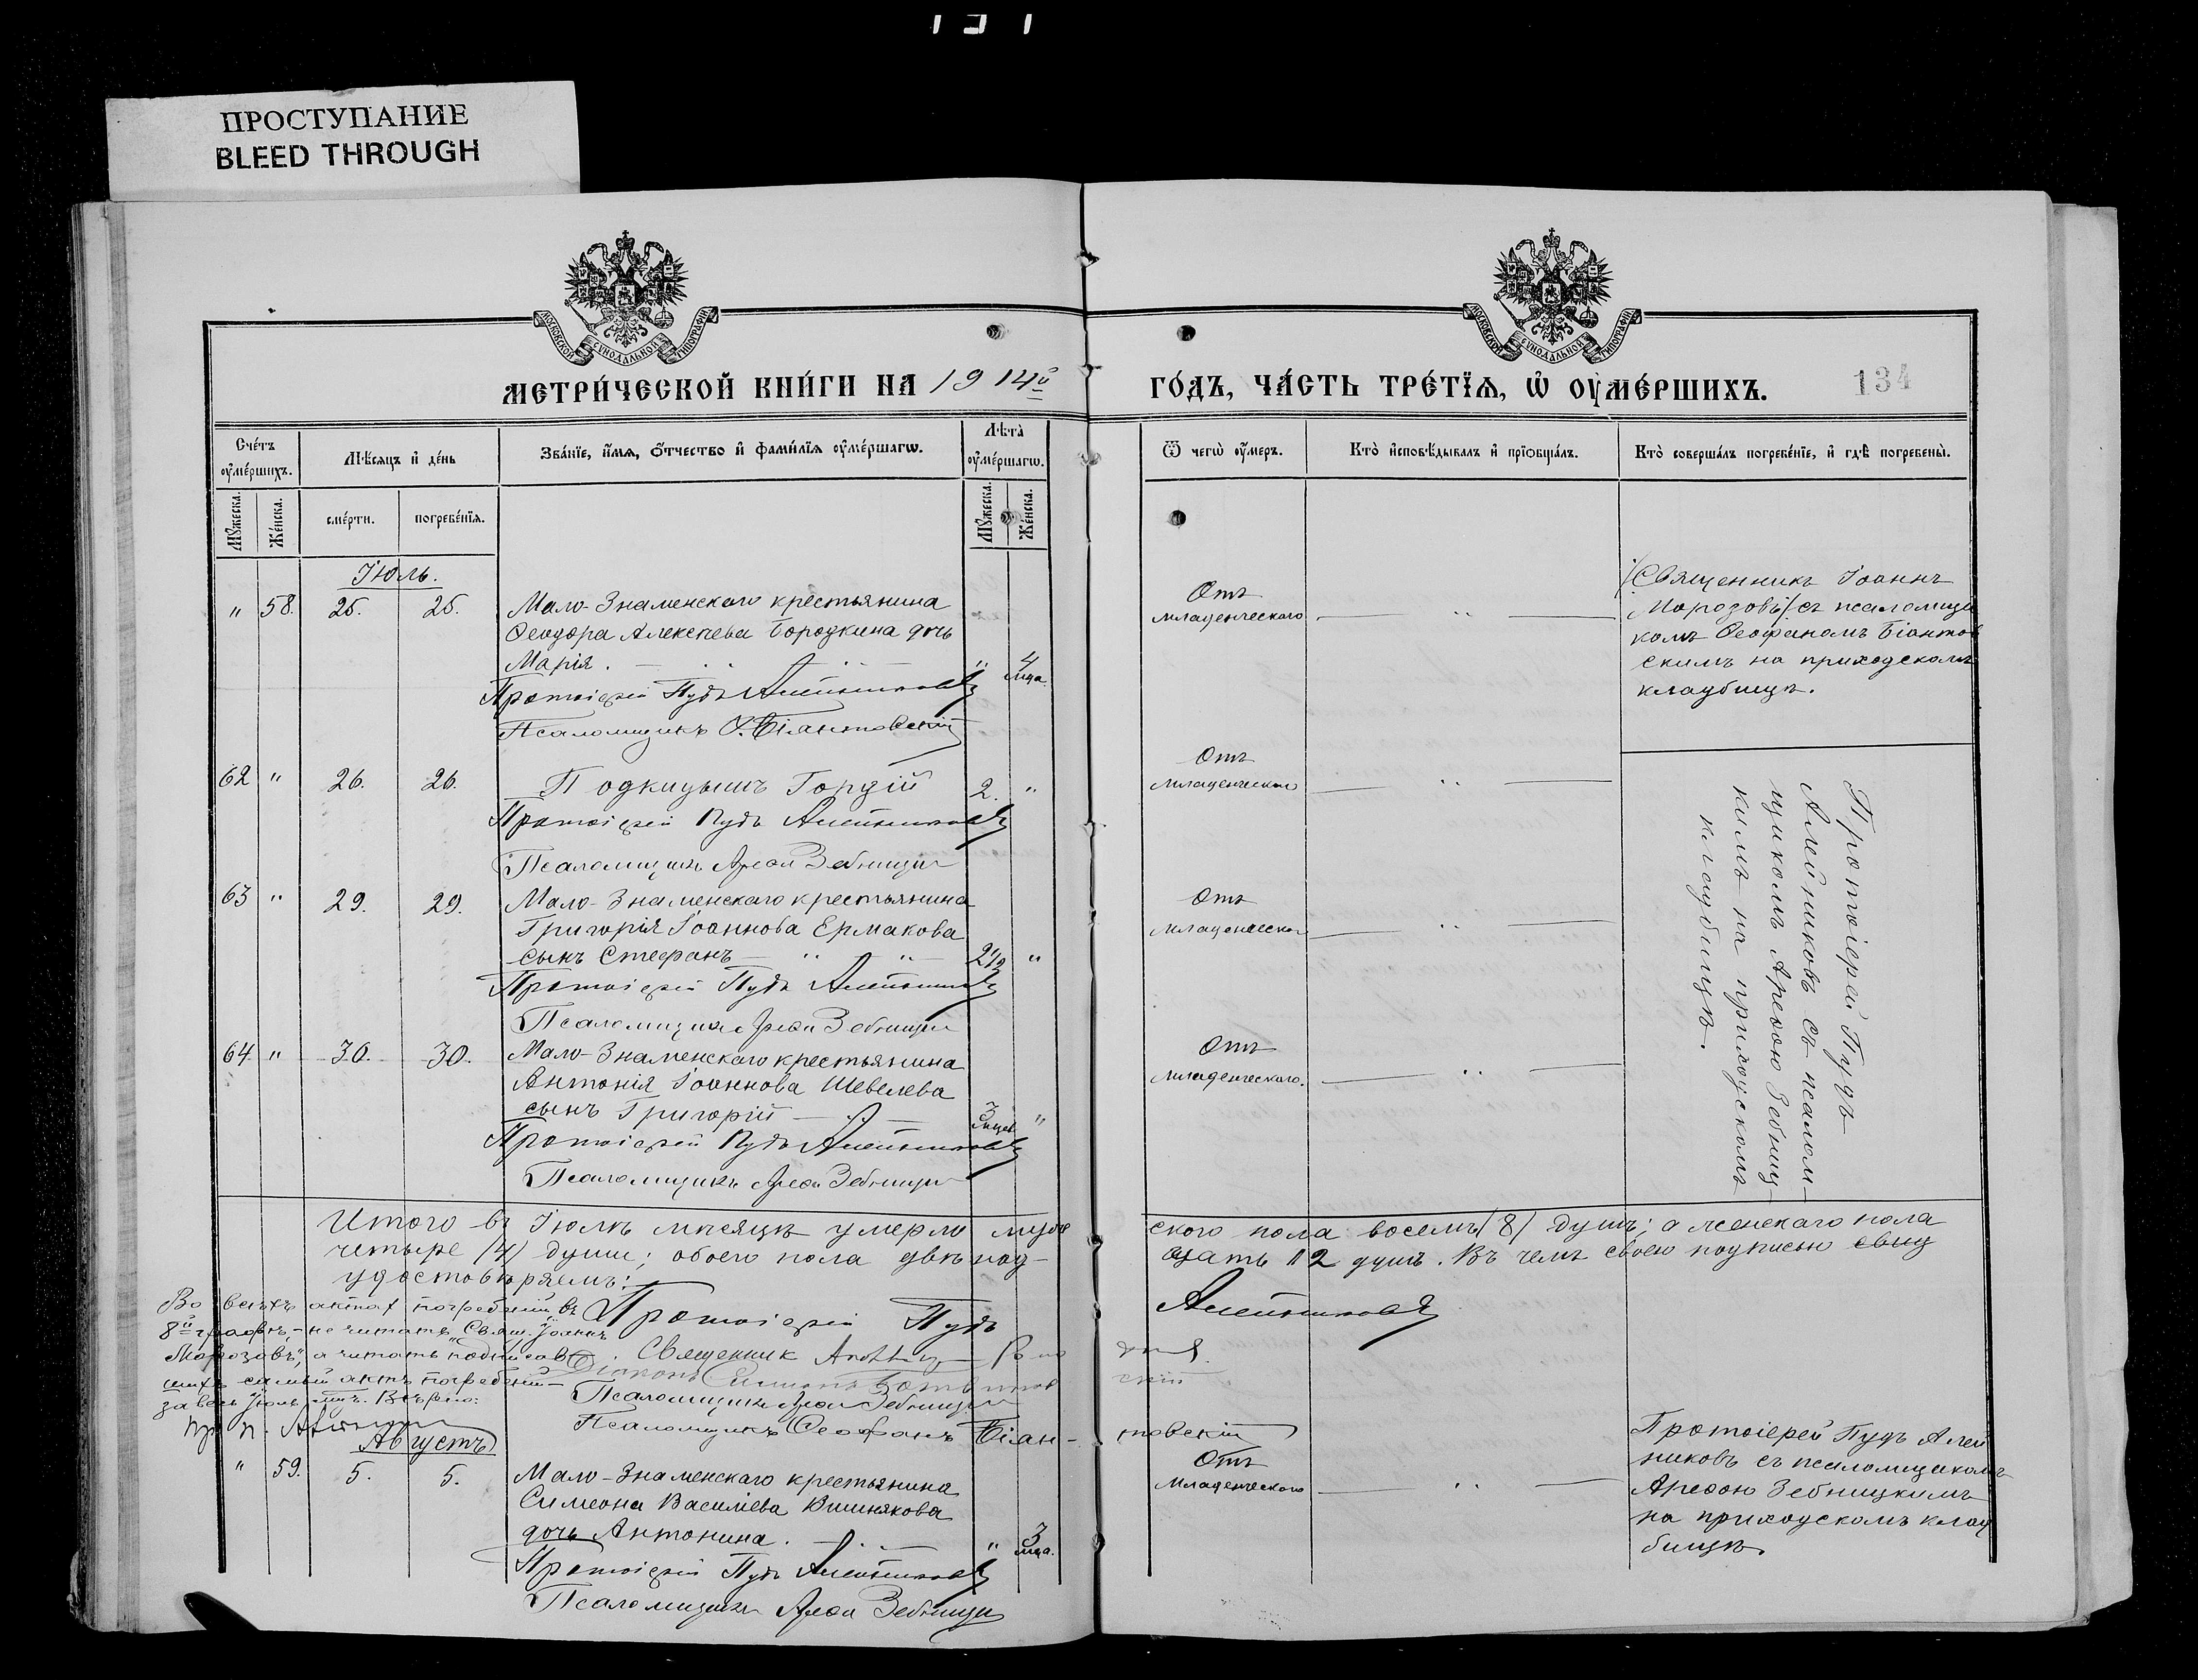 ПРОСТУПАНИЕ
BLEED THROUGH
МОСКОВСКОЙ СѴНОДАЛЬНОЙ ТИПОГРАФІИ
МОСКОВСКОЙ СѴНОДАЛЬНОЙ ТИПОГРАФІИ
МЕТРИ́ЧЕСКОЙ КНИ́ГИ НА 1914й
ГО́ДЪ, ЧА́СТЬ ТРЕ́ТЇѦ, Ѽ ОУ҆МЕ́РШИХЪ.
134
Сче́тъ оу҆ме́ршихъ.
Мѣ́сяцъ и҆ де́нь
Зва́нїе, и҆́мя, ѻ҆́тчество и҆ фами́лїя оу҆ме́ршагѡ.
Лѣта̀ оу҆ме́ршагѡ.
Ѿ чегѡ̀ оу҆́меръ.
Кто̀ и҆сповѣ́дывалъ и҆ прїѡбща́лъ.
Кто̀ соверша́лъ погребе́нїе, и҆ гдѣ̀ погребены̀.
Мꙋ́жеска.
Же́нска.
сме́рти.
погребе́нїя.
Мꙋ́жеска.
Же́нска.
Іюль.
" 58. 25. 25. Мало-Знаменскаго крестьянина
Ѳеодора Алексѣева Бородкина дочь
Марія. " 4 мца.
Протоіерей Пудъ Алейниковъ
Псаломщикъ Ѳ. Біантовскій
Отъ
младенческаго
Священникъ Іоаннъ
Морозовъ съ псаломщи
комъ Ѳеофаномъ Біантов
скимъ на приходскомъ
кладбищѣ.
62 " 26. 26. Подкидышъ Гордій 2. "
Протоіерей Пудъ Алейниковъ
Псаломщикъ Арефа Зебницкій
Отъ
младенческаго
Протоіерей Пудъ
Алейниковъ съ псалом-
щикомъ Арефою Зебниц-
кимъ на приходскомъ
кладбищѣ.
63 " 29. 29. Мало-Знаменскаго крестьянина
Григорія Іоаннова Ермакова
сынъ Стефанъ 2 1/2 "
Протоіерей Пудъ Алейниковъ
Псаломщикъ Арефа Зебницкій
Отъ
младенческаго
64 " 30. 30. Мало-Знаменскаго крестьянина
Антонія Іоаннова Шевелева
сынъ Григорій 3 "
Протоіерей Пудъ Алейниковъ
Псаломщикъ Арефа Зебницкій
Отъ
младенческаго.
Итого въ Іюлѣ мѣсяцѣ умерло муже ского пола восемь (8) душъ; а женскаго пола
четыре (4) души; обоего пола двѣнад- цать 12 душъ. Въ чемъ своею подписью свид
удостовѣряемъ:
Протоіерей Пудъ Алейниковъ
Священникъ
Діаконъ
Псаломщикъ Арефа Зебницкій
Псаломщикъ Ѳеофанъ Біан- товскій
Во всѣхъ актах погребенія въ
8й графѣ, - не читать „Свящ. Іоаннъ
Морозовъ", а читать подписав
шихъ самый актъ погребенія
за весь Іюль мцъ. Вѣрно:
Августъ
" 59. 5. 5. Мало-Знаменскаго крестьянина
Симеона Василіева Вишнякова
дочь Антонина. " 3 мца.
Протоіерей Пудъ Алейниковъ
Псаломщикъ Арефа Зебницкій
Отъ
младенческаго
Протоіерей Пудъ Алей
никовъ съ псаломщикомъ
Арефою Зебницкимъ
на приходскомъ клад
бищѣ.